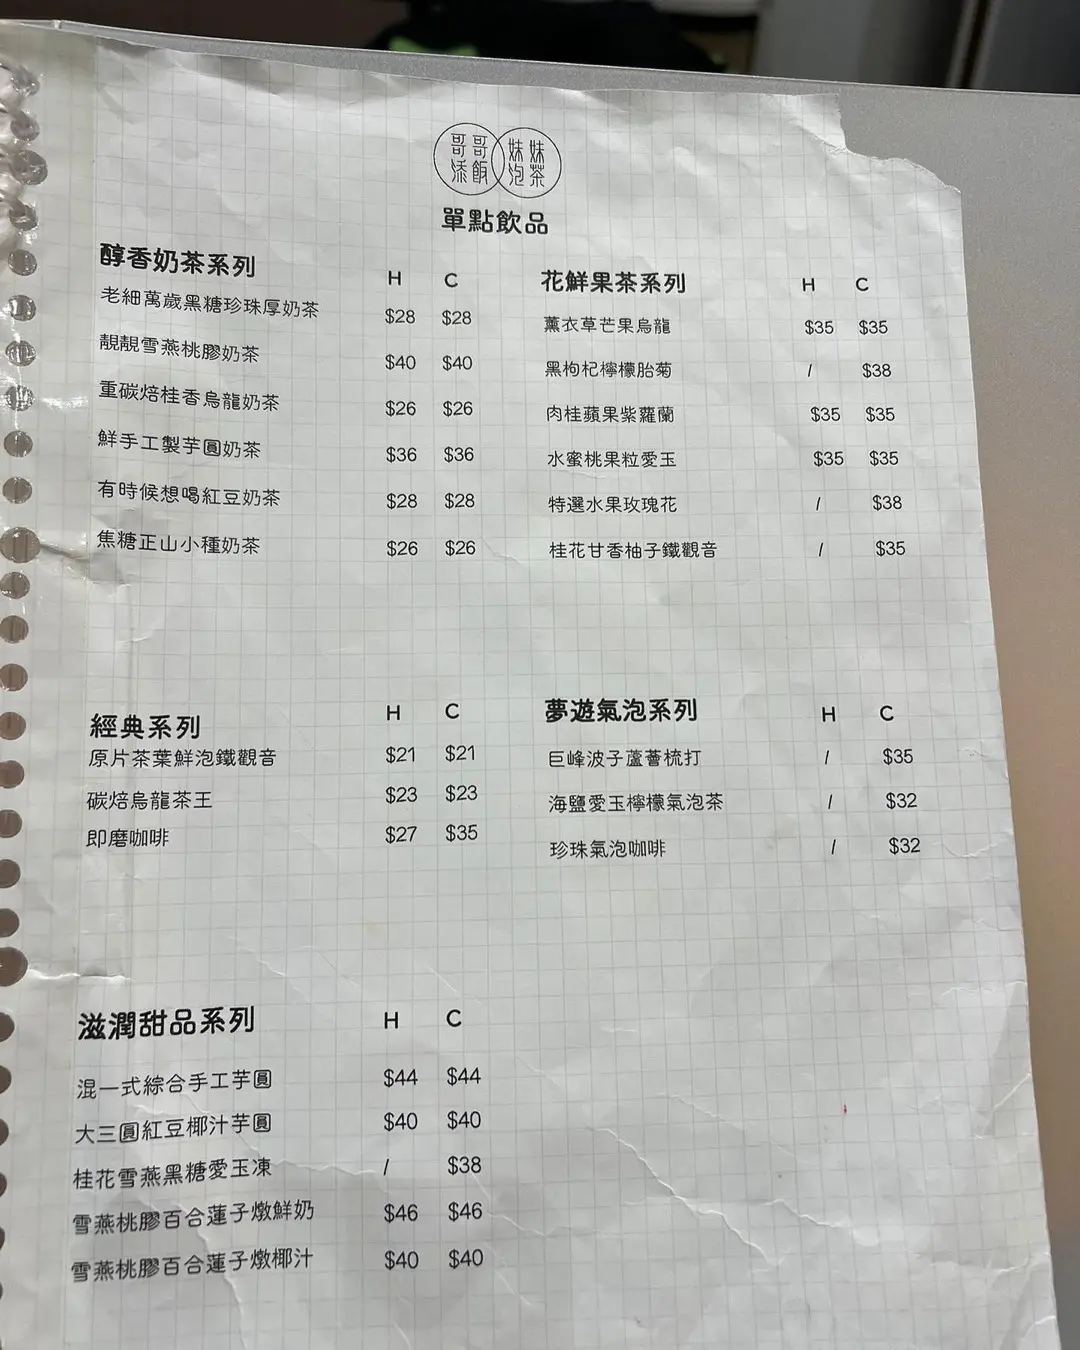 哥哥 妹妹
添飯 泡茶
單點飲品
醇香奶茶系列 H C
老細萬歲黑糖珍珠厚奶茶 $28 $28
靚靚雪燕桃膠奶茶 $40 $40
重碳焙桂香烏龍奶茶 $26 $26
鮮手工製芋圓奶茶 $36 $36
有時候想喝紅豆奶茶 $28 $28
焦糖正山小種奶茶 $26 $26
花鮮果茶系列 H C
薰衣草芒果烏龍 $35 $35
黑枸杞檸檬胎菊 / $38
肉桂蘋果紫蘿蘭 $35 $35
水蜜桃果粒愛玉 $35 $35
特選水果玫瑰花 / $38
桂花甘香柚子鐵觀音 / $35
經典系列 H C
原片茶葉鮮泡鐵觀音 $21 $21
碳焙烏龍茶王 $23 $23
即磨咖啡 $27 $35
夢遊氣泡系列 H C
巨峰波子蘆薈梳打 / $35
海鹽愛玉檸檬氣泡茶 / $32
珍珠氣泡咖啡 / $32
滋潤甜品系列 H C
混一式綜合手工芋圓 $44 $44
大三圓紅豆椰汁芋圓 $40 $40
桂花雪燕黑糖愛玉凍 / $38
雪燕桃膠百合蓮子燉鮮奶 $46 $46
雪燕桃膠百合蓮子燉椰汁 $40 $40